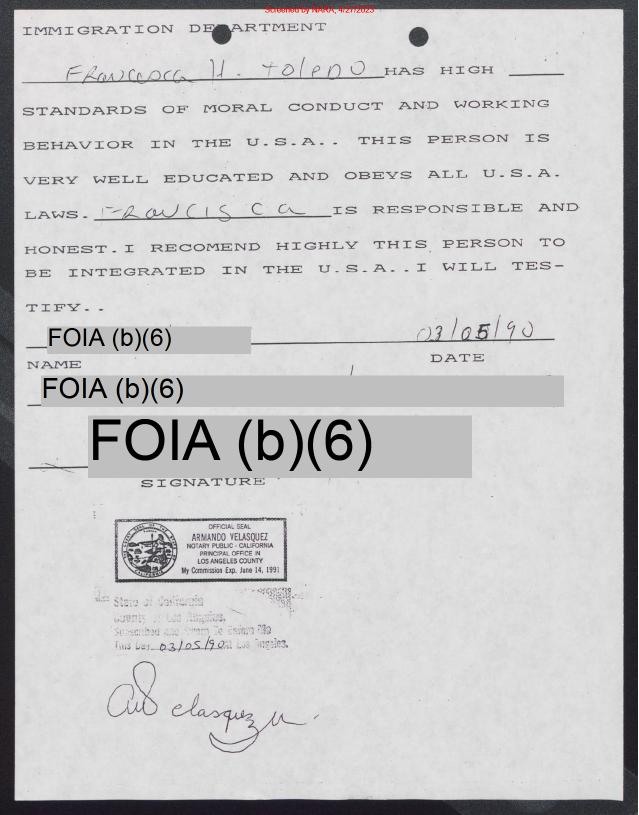 Screened by NARA, 4/27/2023
IMMIGRATION DEPARTMENT
Francisca H. Toledo HAS HIGH
STANDARDS OF MORAL CONDUCT AND WORKING
BEHAVIOR IN THE U.S.A.. THIS PERSON IS
VERY WELL EDUCATED AND OBEYS ALL U.S.A.
LAWS. Francisca IS RESPONSIBLE AND
HONEST.I RECOMEND HIGHLY THIS PERSON TO
BE INTEGRATED IN THE U.S.A..I WILL TES-
TIFY..
FOIA (b)(6) 03/05/90
NAME DATE
FOIA (b)(6)
FOIA (b)(6)
SIGNATURE
OFFICIAL SEAL
ARMANDO VELASQUEZ
NOTARY PUBLIC - CALIFORNIA
PRINCIPAL OFFICE IN
LOS ANGELES COUNTY
My Commission Exp. June 14, 1991
State of California
County of Los Angeles.
Subscribed and Sworn To Before Me
This Day 03/05/90 At Los Angeles.
Velasquez